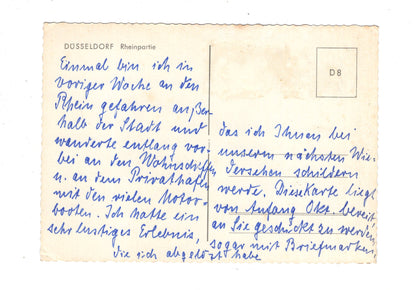 DÜSSELDORF Rheinpartie
D 8
Einmal bin ich in
voriger Woche an den
Rhein gefahren außer-
halb der Stadt und
wanderte entlang vor-
bei an den Wohnschiffen
u. an dem Privathafen
mit den vielen Motor-
booten. Ich hatte ein
sehr lustiges Erlebnis,
das ich Ihnen bei
unserem nächsten Wie-
dersehen schildern
werde. Diese Karte liegt
von Anfang Okt. bereit
an Sie geschickt zu werden,
sogar mit Briefmarken,
die ich abgelöst habe